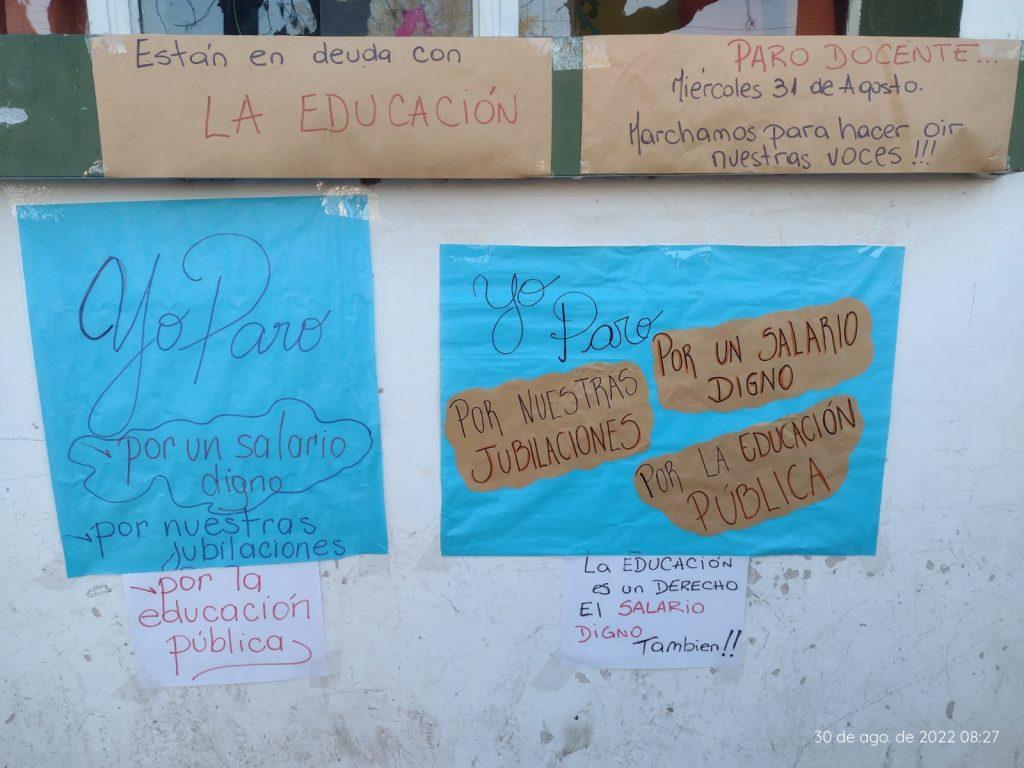 Están en deuda con
LA EDUCACIÓN
PARO DOCENTE...
Miércoles 31 de Agosto.
Marchamos para hacer oir
nuestras voces!!!
Yo Paro
por un salario
digno
por nuestras
jubilaciones
por la
educación
pública
Yo
Paro
POR UN SALARIO
DIGNO
POR NUESTRAS
JUBILACIONES
POR LA EDUCACIÓN
PÚBLICA
LA EDUCACIÓN
es un DERECHO
El SALARIO
DIGNO
Tambien!!
30 de ago. de 2022 08:27